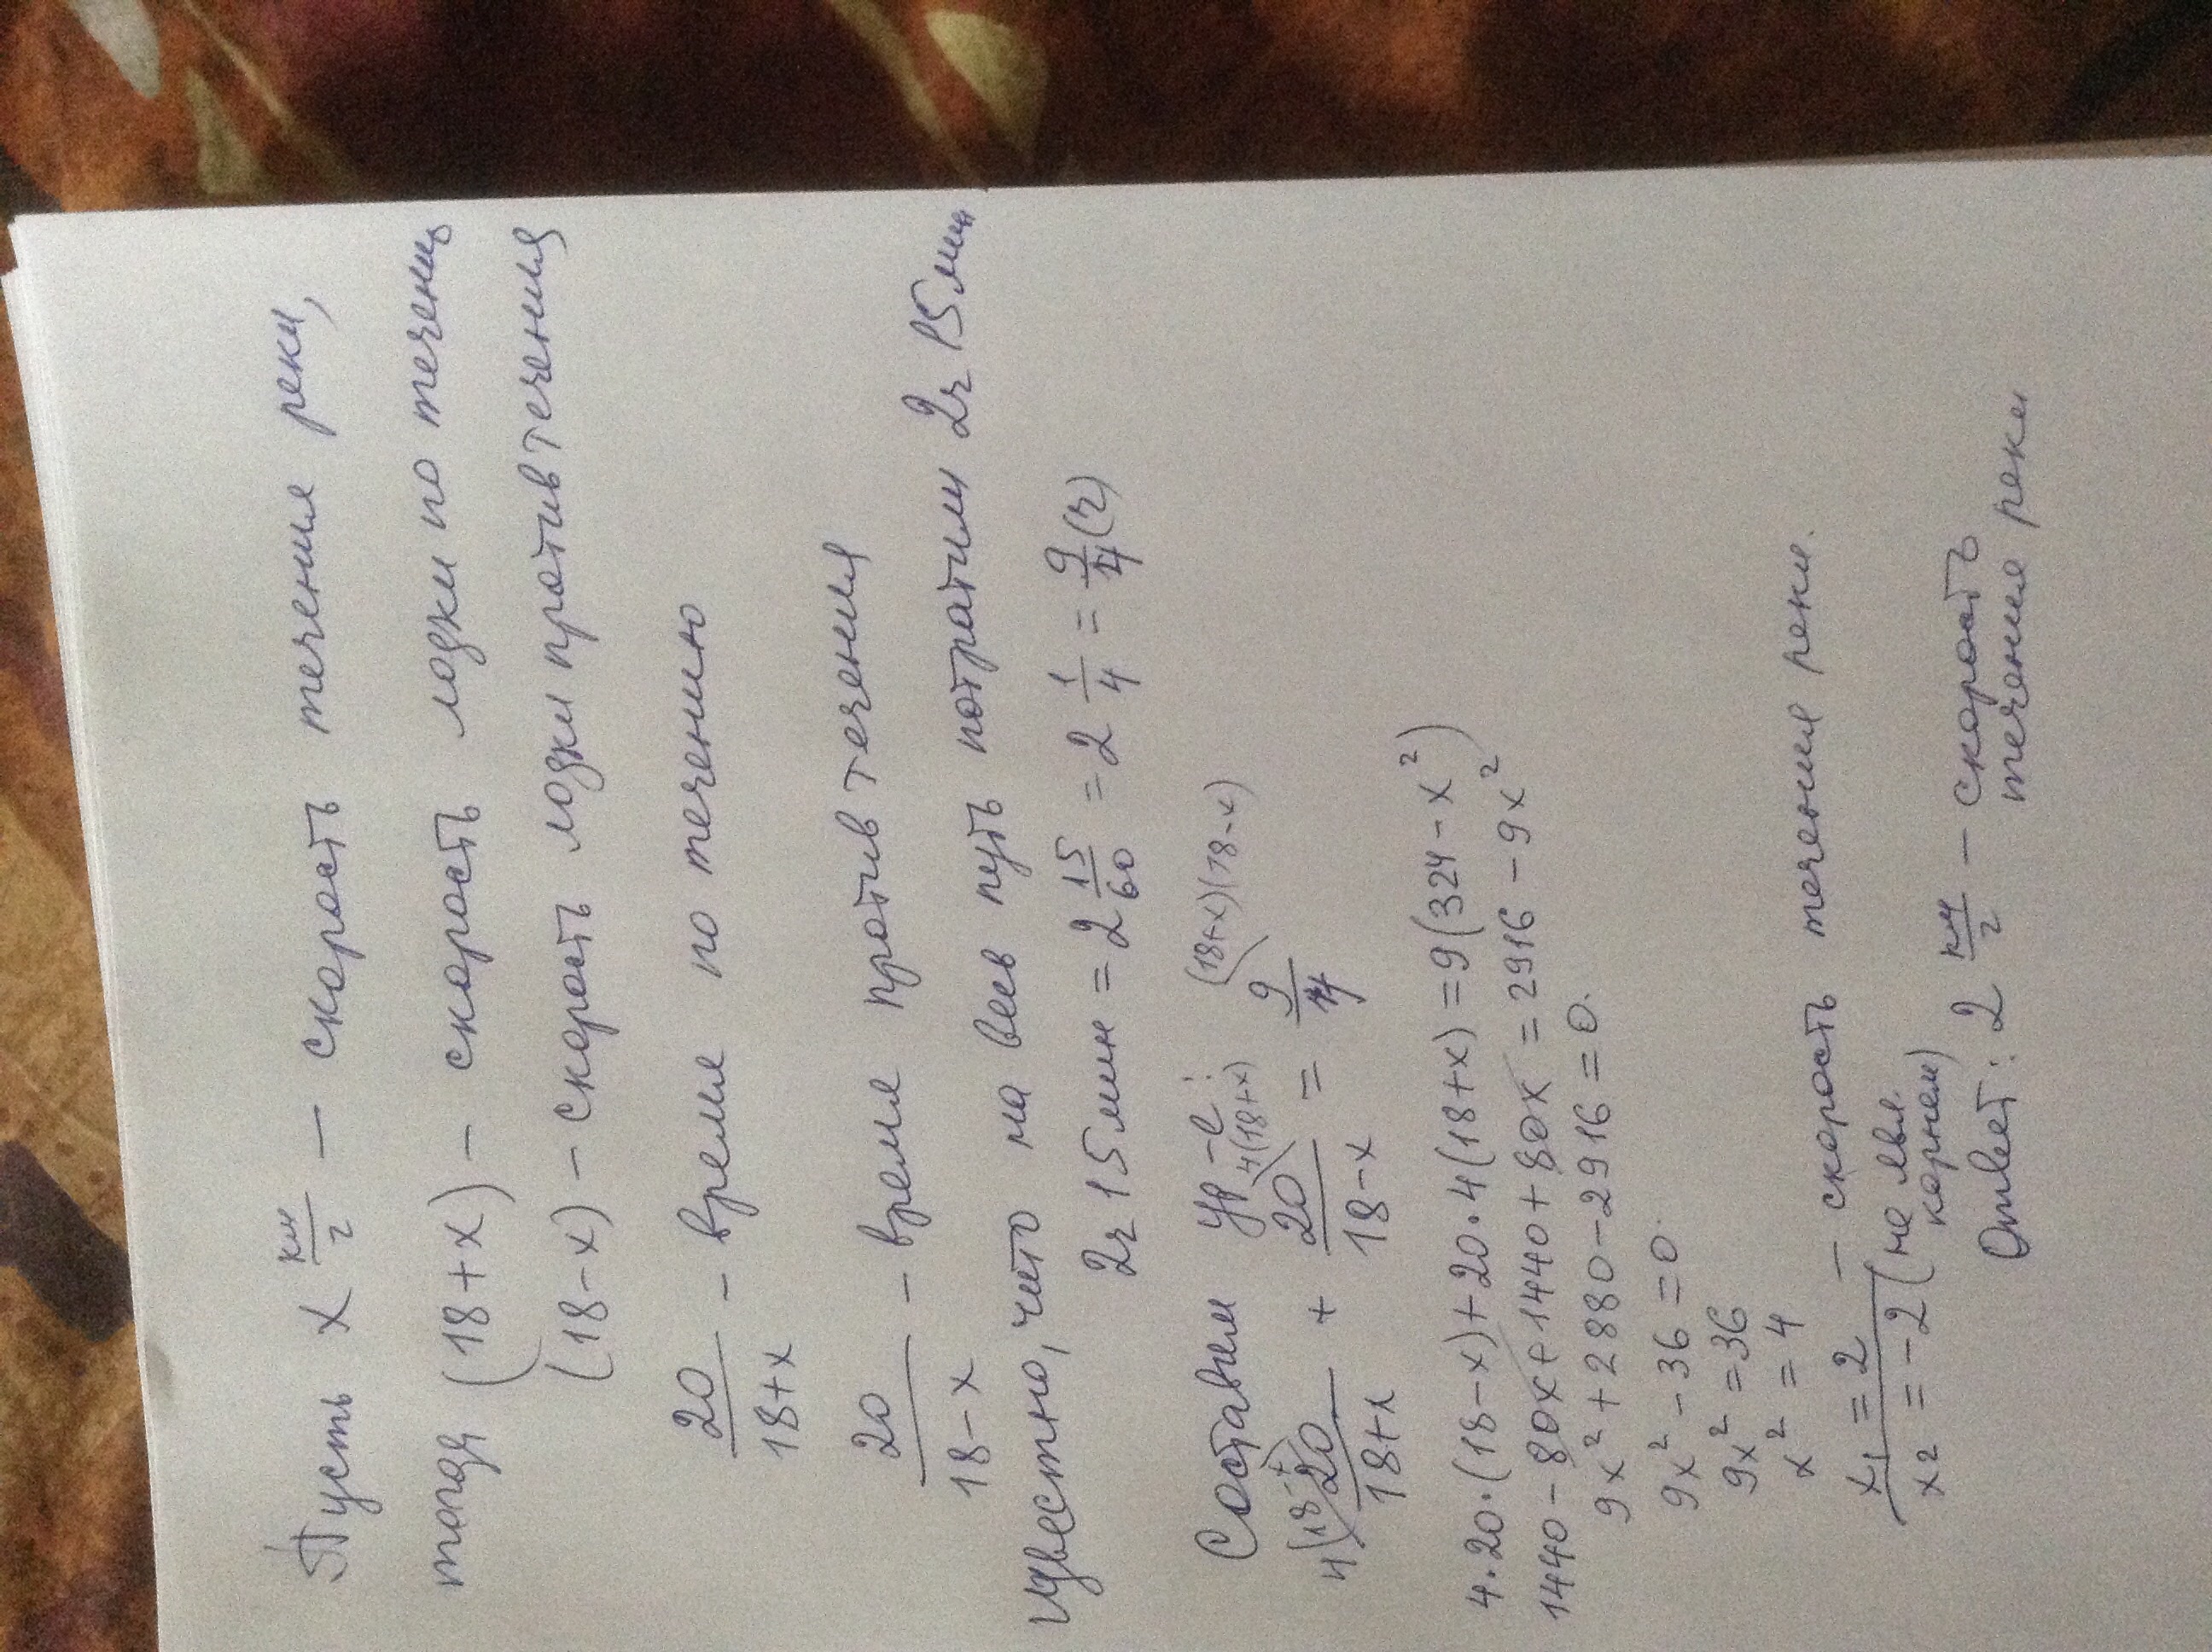 Пусть x км/ч — скорость течения реки,
тогда (18+x) — скорость лодки по течению
(18-x) — скорость лодки против течения
20/(18+x) - время по течению
20/(18-x) - время против течения
Известно, что на весь путь потратили 2ч 15мин
2ч 15мин = 2 15/60 = 2 1/4 = 9/4 (ч)
Составим ур-е:
4(18-x) 4(18+x) (18+x)(18-x)
20/(18+x) + 20/(18-x) = 9/4
4·20·(18-x)+20·4(18+x)=9(324-x²)
1440-80x+1440+80x=2916-9x²
9x²+2880-2916=0.
9x²-36=0.
9x²=36
x²=4
x₁=2 — скорость течения реки.
x₂=-2 (не явл. корнем)
Ответ: 2 км/ч — скорость
течения реки